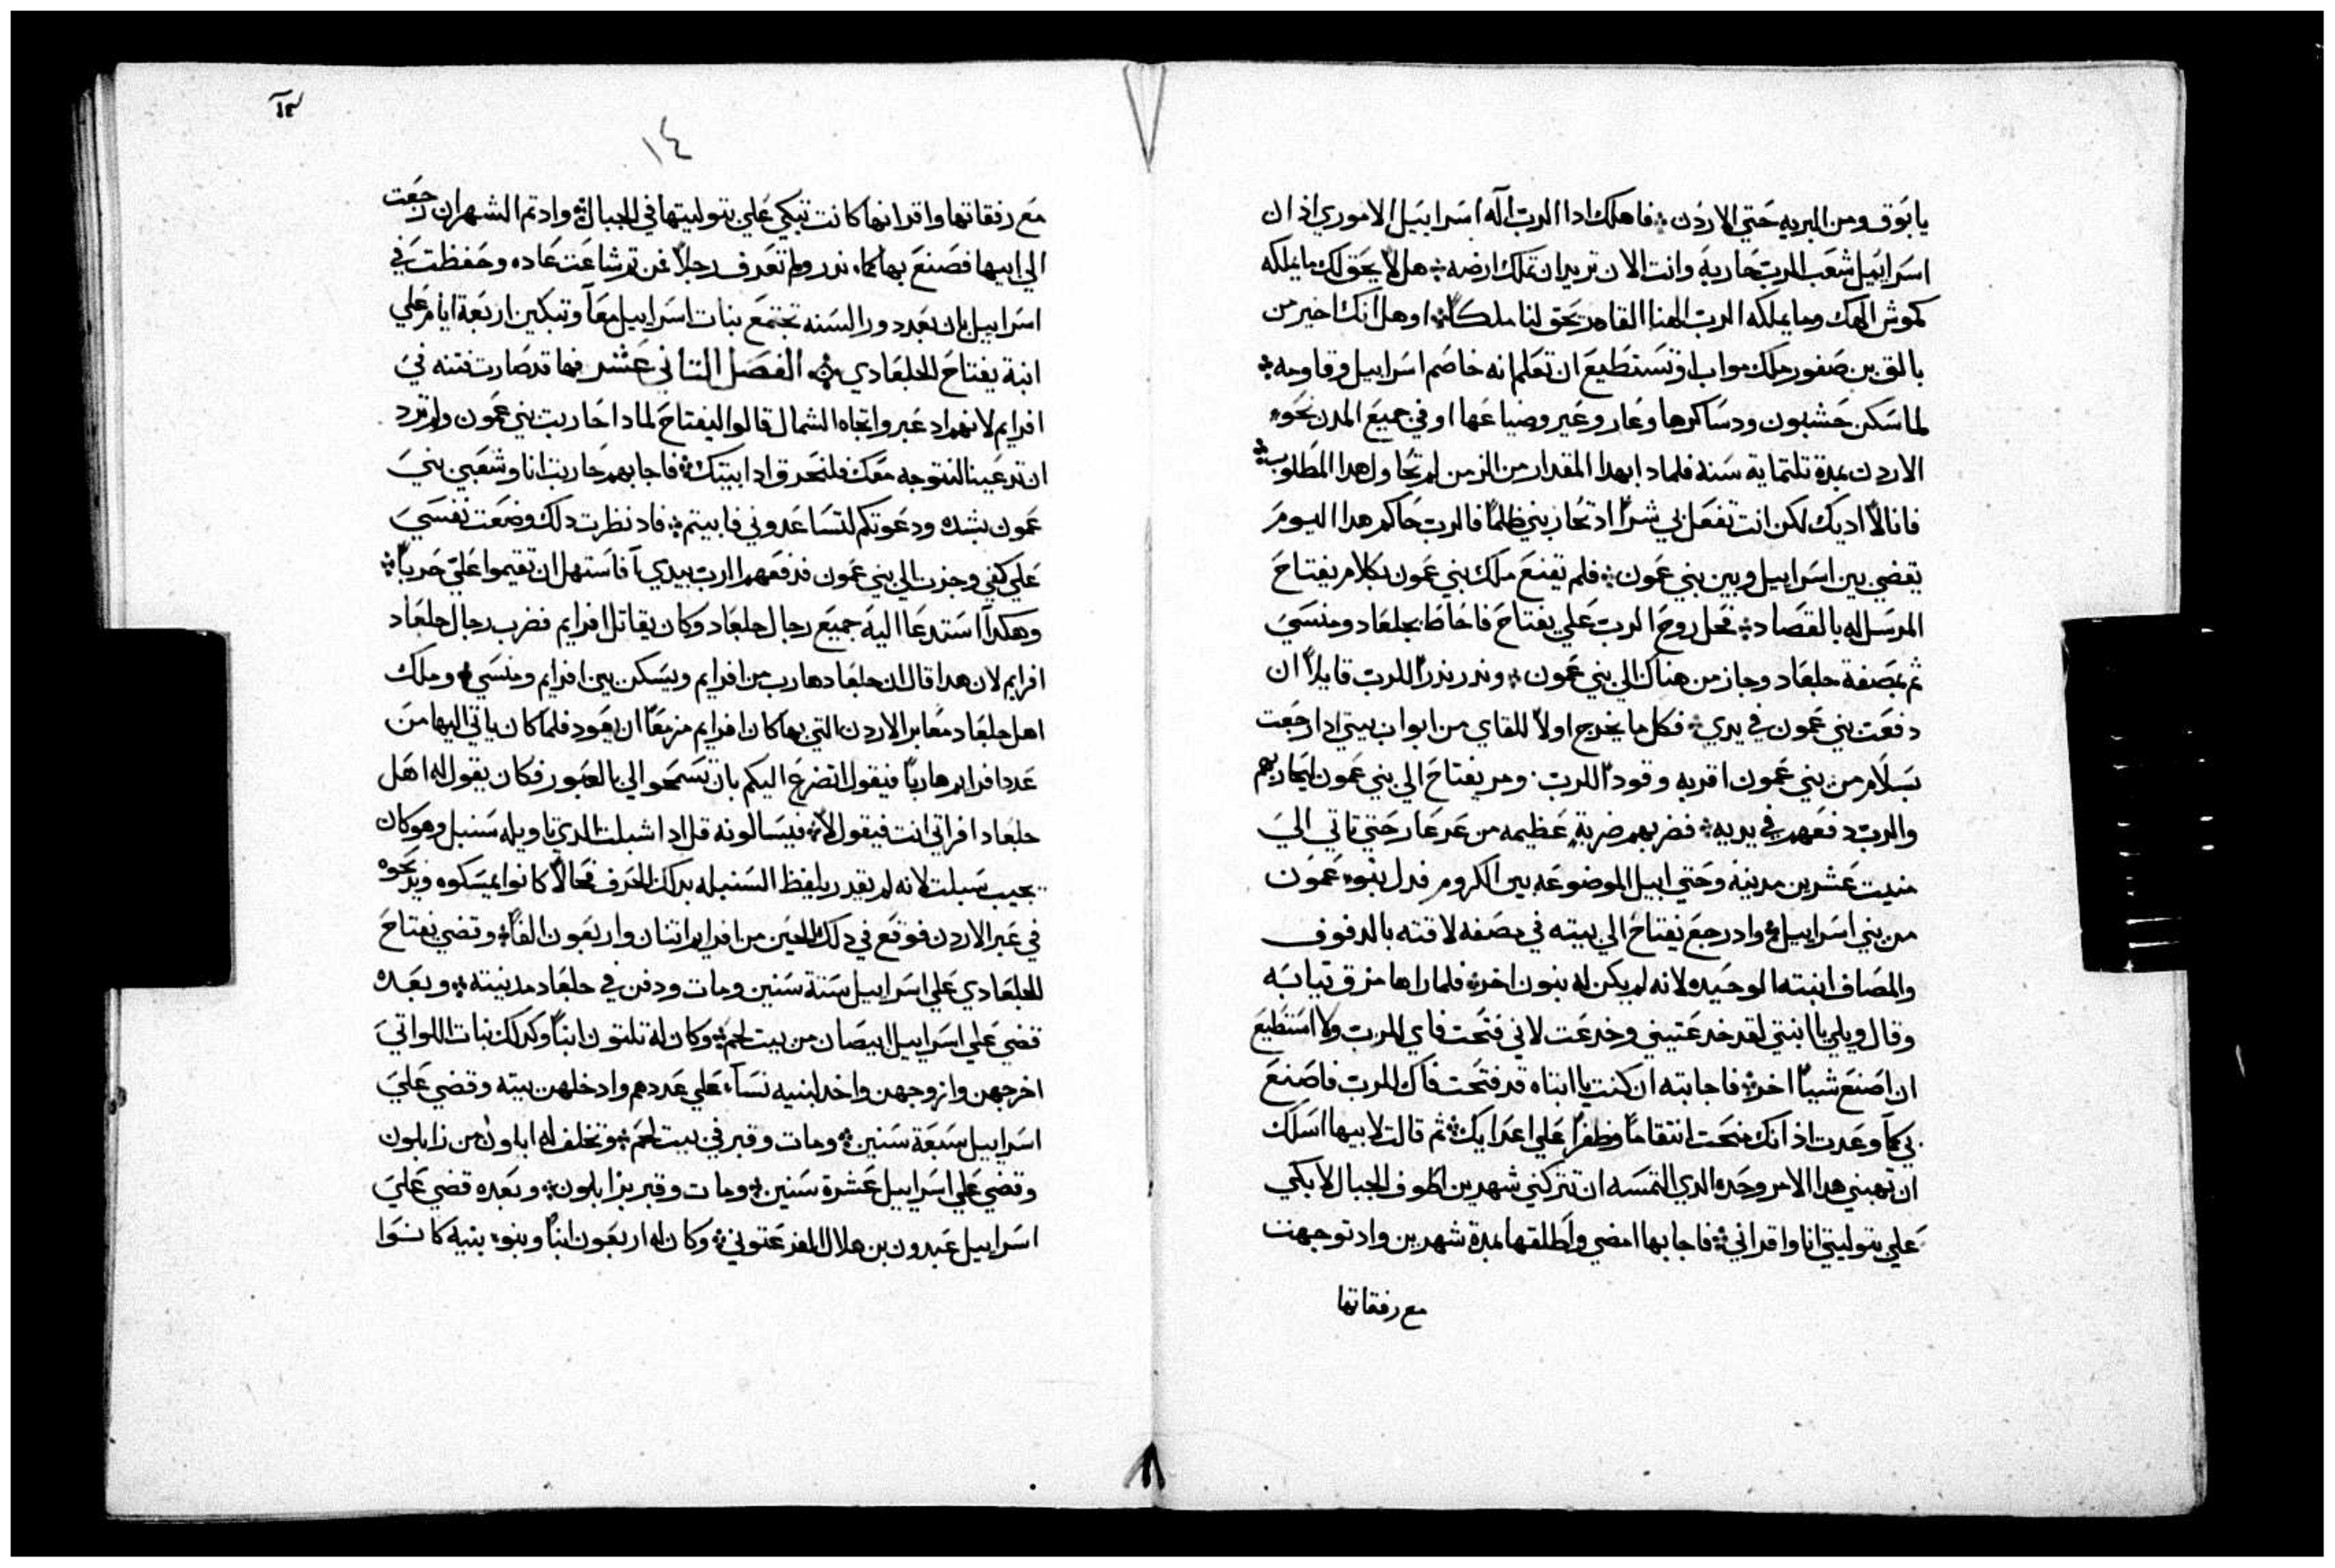 يابوق ومن البريه حتي الاردن ؞ فاهلك ادا الرب اله اسراييل الاموري اذ ان
اسراييل شعب الرب حاربه وانت الان تريد ان تملك ارضه ؞ هل لا يحق لك ما يملكه
كموش الهك وما يملكه الرب الهنا القاهر يحق لنا ملكاً ؞ اوهل انك اخير من
بالق بن صفور ملك مواب او تستطيع ان تعلم انه خاصم اسراييل وقاومه ؞
لما سكن حشبون ودساكرها وعاروعير وضياعها او في جميع المدن نحو
الاردن بمدة تلتماية سنه فلمادا بهدا المقدار من الزمن لم تحاول هدا المطلوب ؞
فانا لا اديك لكن انت تفعل بي شراً اد تحاربني ظلماً فالرب حاكم هدا اليوم
يقضي بين اسراييل وبين بني عمون ؞ فلم يقنع ملك بني عمون بكلام يفتاح
المرسل له بالقصاد ؞ فحل روح الرب علي يفتاح فاحاط بجلعاد ومنسي
ثم بمصفة جلعاد وجاز من هناك الي بني عمون ؞ وندر ندراً للرب قايلاً ان
دفعت بني عمون في يدي ؞ فكل ما يخرج اولاً للقاي من ابواب بيتي ادا رجعت
بسلام من بني عمون اقربه وقوداً للرب . ومر يفتاح الي بني عمون ليحاربهم
والرب دفعهم في يديه ؞ فضربهم ضربة عظيمه من عرعار حتي تاتي الي
منيت عشرين مدينه وحتي ابيل الموضوعه بين الكروم فدل بنوا عمون
من بني اسراييل ؞ واد رجع يفتاح الي بيته في مصفه لاقته بالدفوف
والمصاف ابنته الوحيده لانه لم يكن له بنون اخر ؞ فلما راها مزق تيابه
وقال ويلي يا ابنتي لقد خدعتيني وخدعت لاني فتحت فاي للرب ولا استطيع
ان اصنع شياً اخر ؞ فاجابته ان كنت يا ابتاه قد فتحت فاك للرب فاصنع
بي كما وعدت اذ انك منحت انتقاماً وظفراً علي اعدايك ؞ ثم قالت لابيها اسلك
ان تهبني هدا الامر وحده الدي التمسه ان تتركني شهرين اطوف الجبال لابكي
علي بتوليتي انا واقراني ؞ فاجابها امضي واطلقها بمدة شهرين واد توجهت
مع رفقاتها
١٤
مع رفقاتها واقرانها كانت تبكي علي بتوليتها في الجبال ؞ واد تم الشهران رجعت
الي ابيها فصنع بها كما ندر ولم تعرف رجلاً فمن تم شاعت عاده وحفظت في
اسراييل بان بعد دور السنه تجتمع بنات اسراييل معاً وتبكين اربعة ايام علي
ابنة يفتاح الجلعادي ؞ الفصل التاني عشر فها قد صارت فتنه في
افرايم لانهم اد عبروا تجاه الشمال قالوا ليفتاح لمادا حاربت بني عمون ولم ترد
ان تدعينا لنتوجه معك فلنحرق ادا بيتك ؞ فاجابهم حاربت انا وشعبي بني
عمون بشده ودعوتكم لتساعدوني فابيتم ؞ فاد نظرت دلك وضعت نفسي
علي كفي وجزت الي بني عمون فدفعهم الرب بيدي افاستهل ان تقيموا علي حرباً ؞
وهكدا استدعا اليه جميع رجال جلعاد وكان يقاتل افرايم فضرب رجال جلعاد
افرايم لان هدا قال ان جلعاد هارب من افرايم ويسكن بين افرايم ومنسي ؞ وملك
اهل جلعاد معابر الاردن التي بها كان افرايم مزمعاً ان يعود فلما كان ياتي اليها من
عدد افرايم هارباً فيقول اتضرع اليكم بان تسمحوا لي بالعبور فكان يقول له اهل
جلعاد افراتي انت فيقول لا ؞ فيسالونه قل ادا شبلت الدي تاويله سنبل وهو كان
يجيب سبلت لانه لم يقدر يلفظ السنبله بدلك الحرف فحالاً كانوا يمسكوه ويدبحوه
في عبر الاردن فوقع في دلك الحين من افرايم اتنان واربعون الفاً ؞ وقضي يفتاح
الجلعادي علي اسراييل ستة سنين ومات ودفن في جلعاد مدينته ؞ وبعده
قضي علي اسراييل ابيصان من بيت لحم ؞ وكان له تلتون ابناً وكدلك بنات اللواتي
اخرجهن وازوجهن واخد لبنيه نسآء علي عددهم وادخلهن بيته وقضي علي
اسراييل سبعة سنين ؞ ومات وقبر في بيت لحم ؞ وتخلف له ايلون من زابلون
وقضي علي اسراييل عشرة سنين ؞ ومات وقبر بزابلون ؞ وبعده قضي علي
اسراييل عبدون بن هلال الفرعتوني ؞ وكان له اربعون ابناً وبنو بنيه كانوا